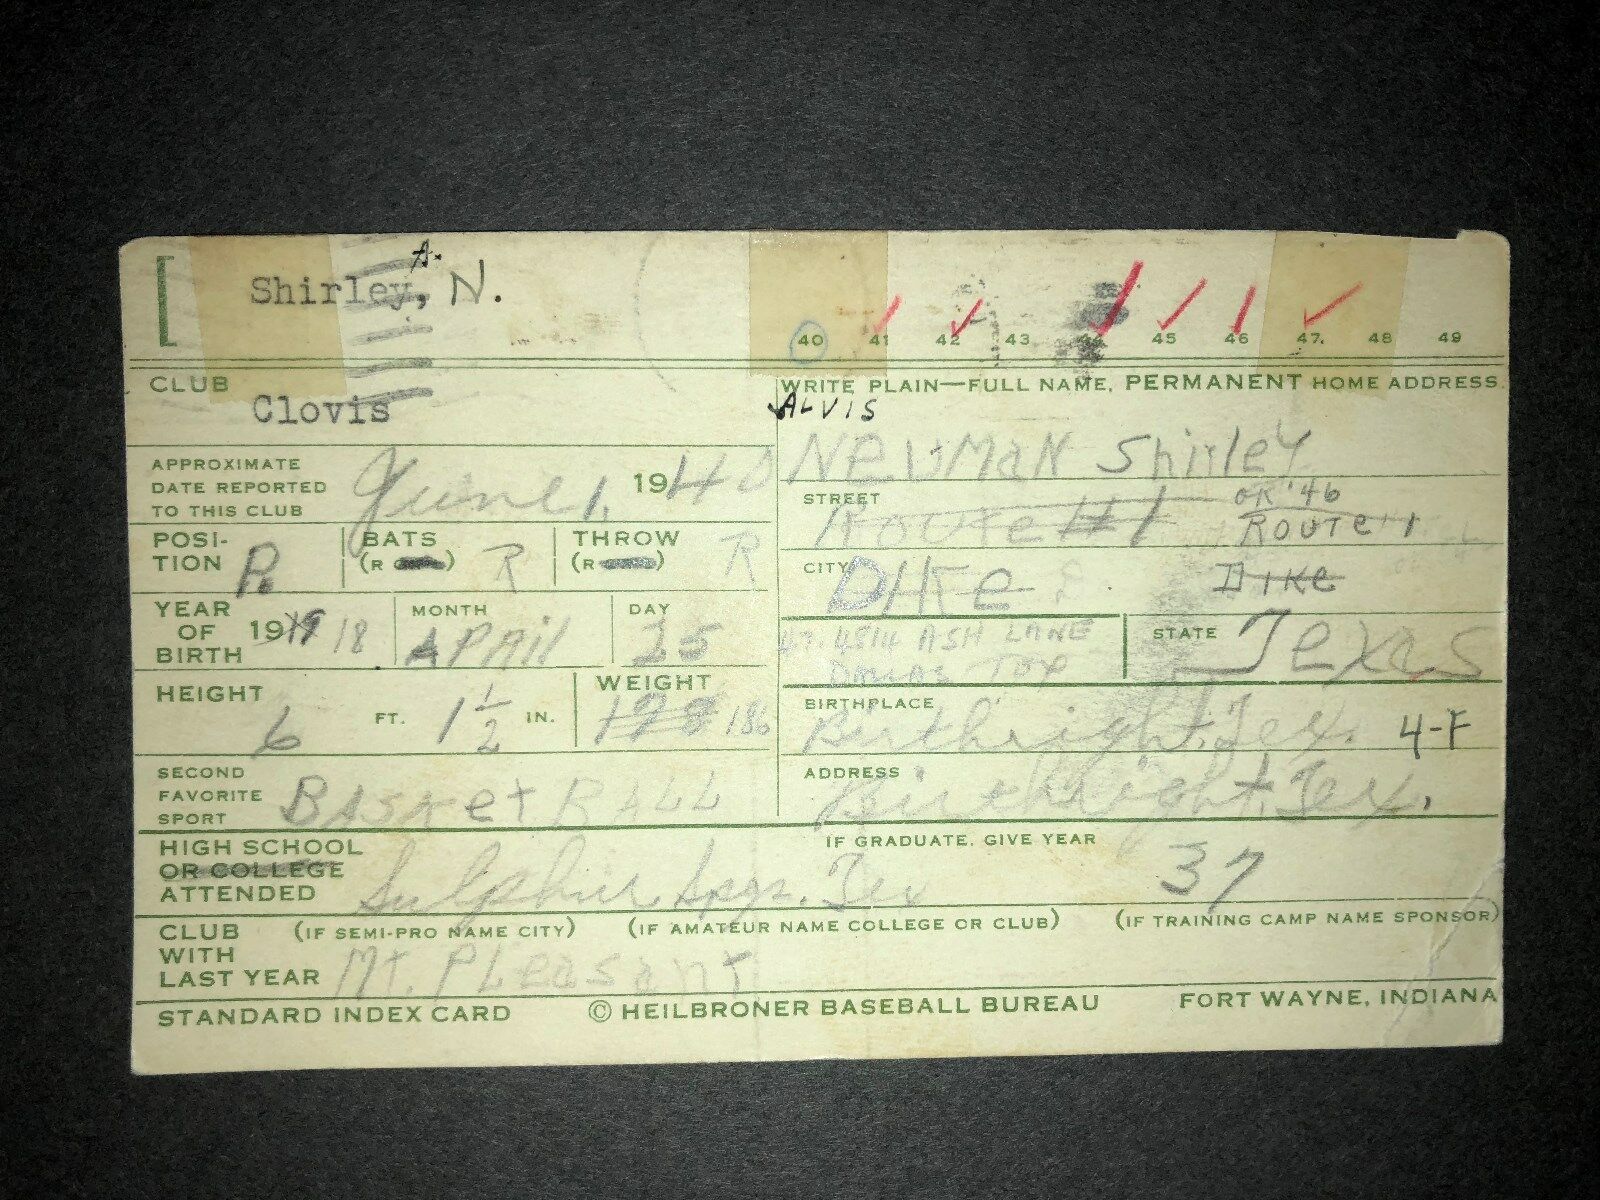 A.
Shirley, N.
40 41 42 43 45 46 47. 48 49
CLUB
Clovis
WRITE PLAIN—FULL NAME, PERMANENT HOME ADDRESS
ALVIS
NEWMAN Shirley
APPROXIMATE
DATE REPORTED
TO THIS CLUB
June 1, 1940
STREET
Route #1
OK '46
ROUTE 1
POSI-
TION P.
BATS
(R ) R
THROW
(R ) R
CITY
DIKE
DIKE
YEAR
OF
BIRTH
1919 18
MONTH
APRIL
DAY
25
47. 4814 ASH LANE
DALLAS TEX
STATE Texas
HEIGHT
6 FT. 1 1/2 IN.
WEIGHT
178 186
BIRTHPLACE
Birthright, Tex. 4-F
SECOND
FAVORITE
SPORT
BASKET BALL
ADDRESS
Birthright, Tex.
HIGH SCHOOL
OR COLLEGE
ATTENDED
Sulphur Spgs. Tex
IF GRADUATE, GIVE YEAR
37
CLUB
WITH
LAST YEAR
(IF SEMI-PRO NAME CITY) (IF AMATEUR NAME COLLEGE OR CLUB) (IF TRAINING CAMP NAME SPONSOR)
Mt. PLeasant
STANDARD INDEX CARD © HEILBRONER BASEBALL BUREAU FORT WAYNE, INDIANA